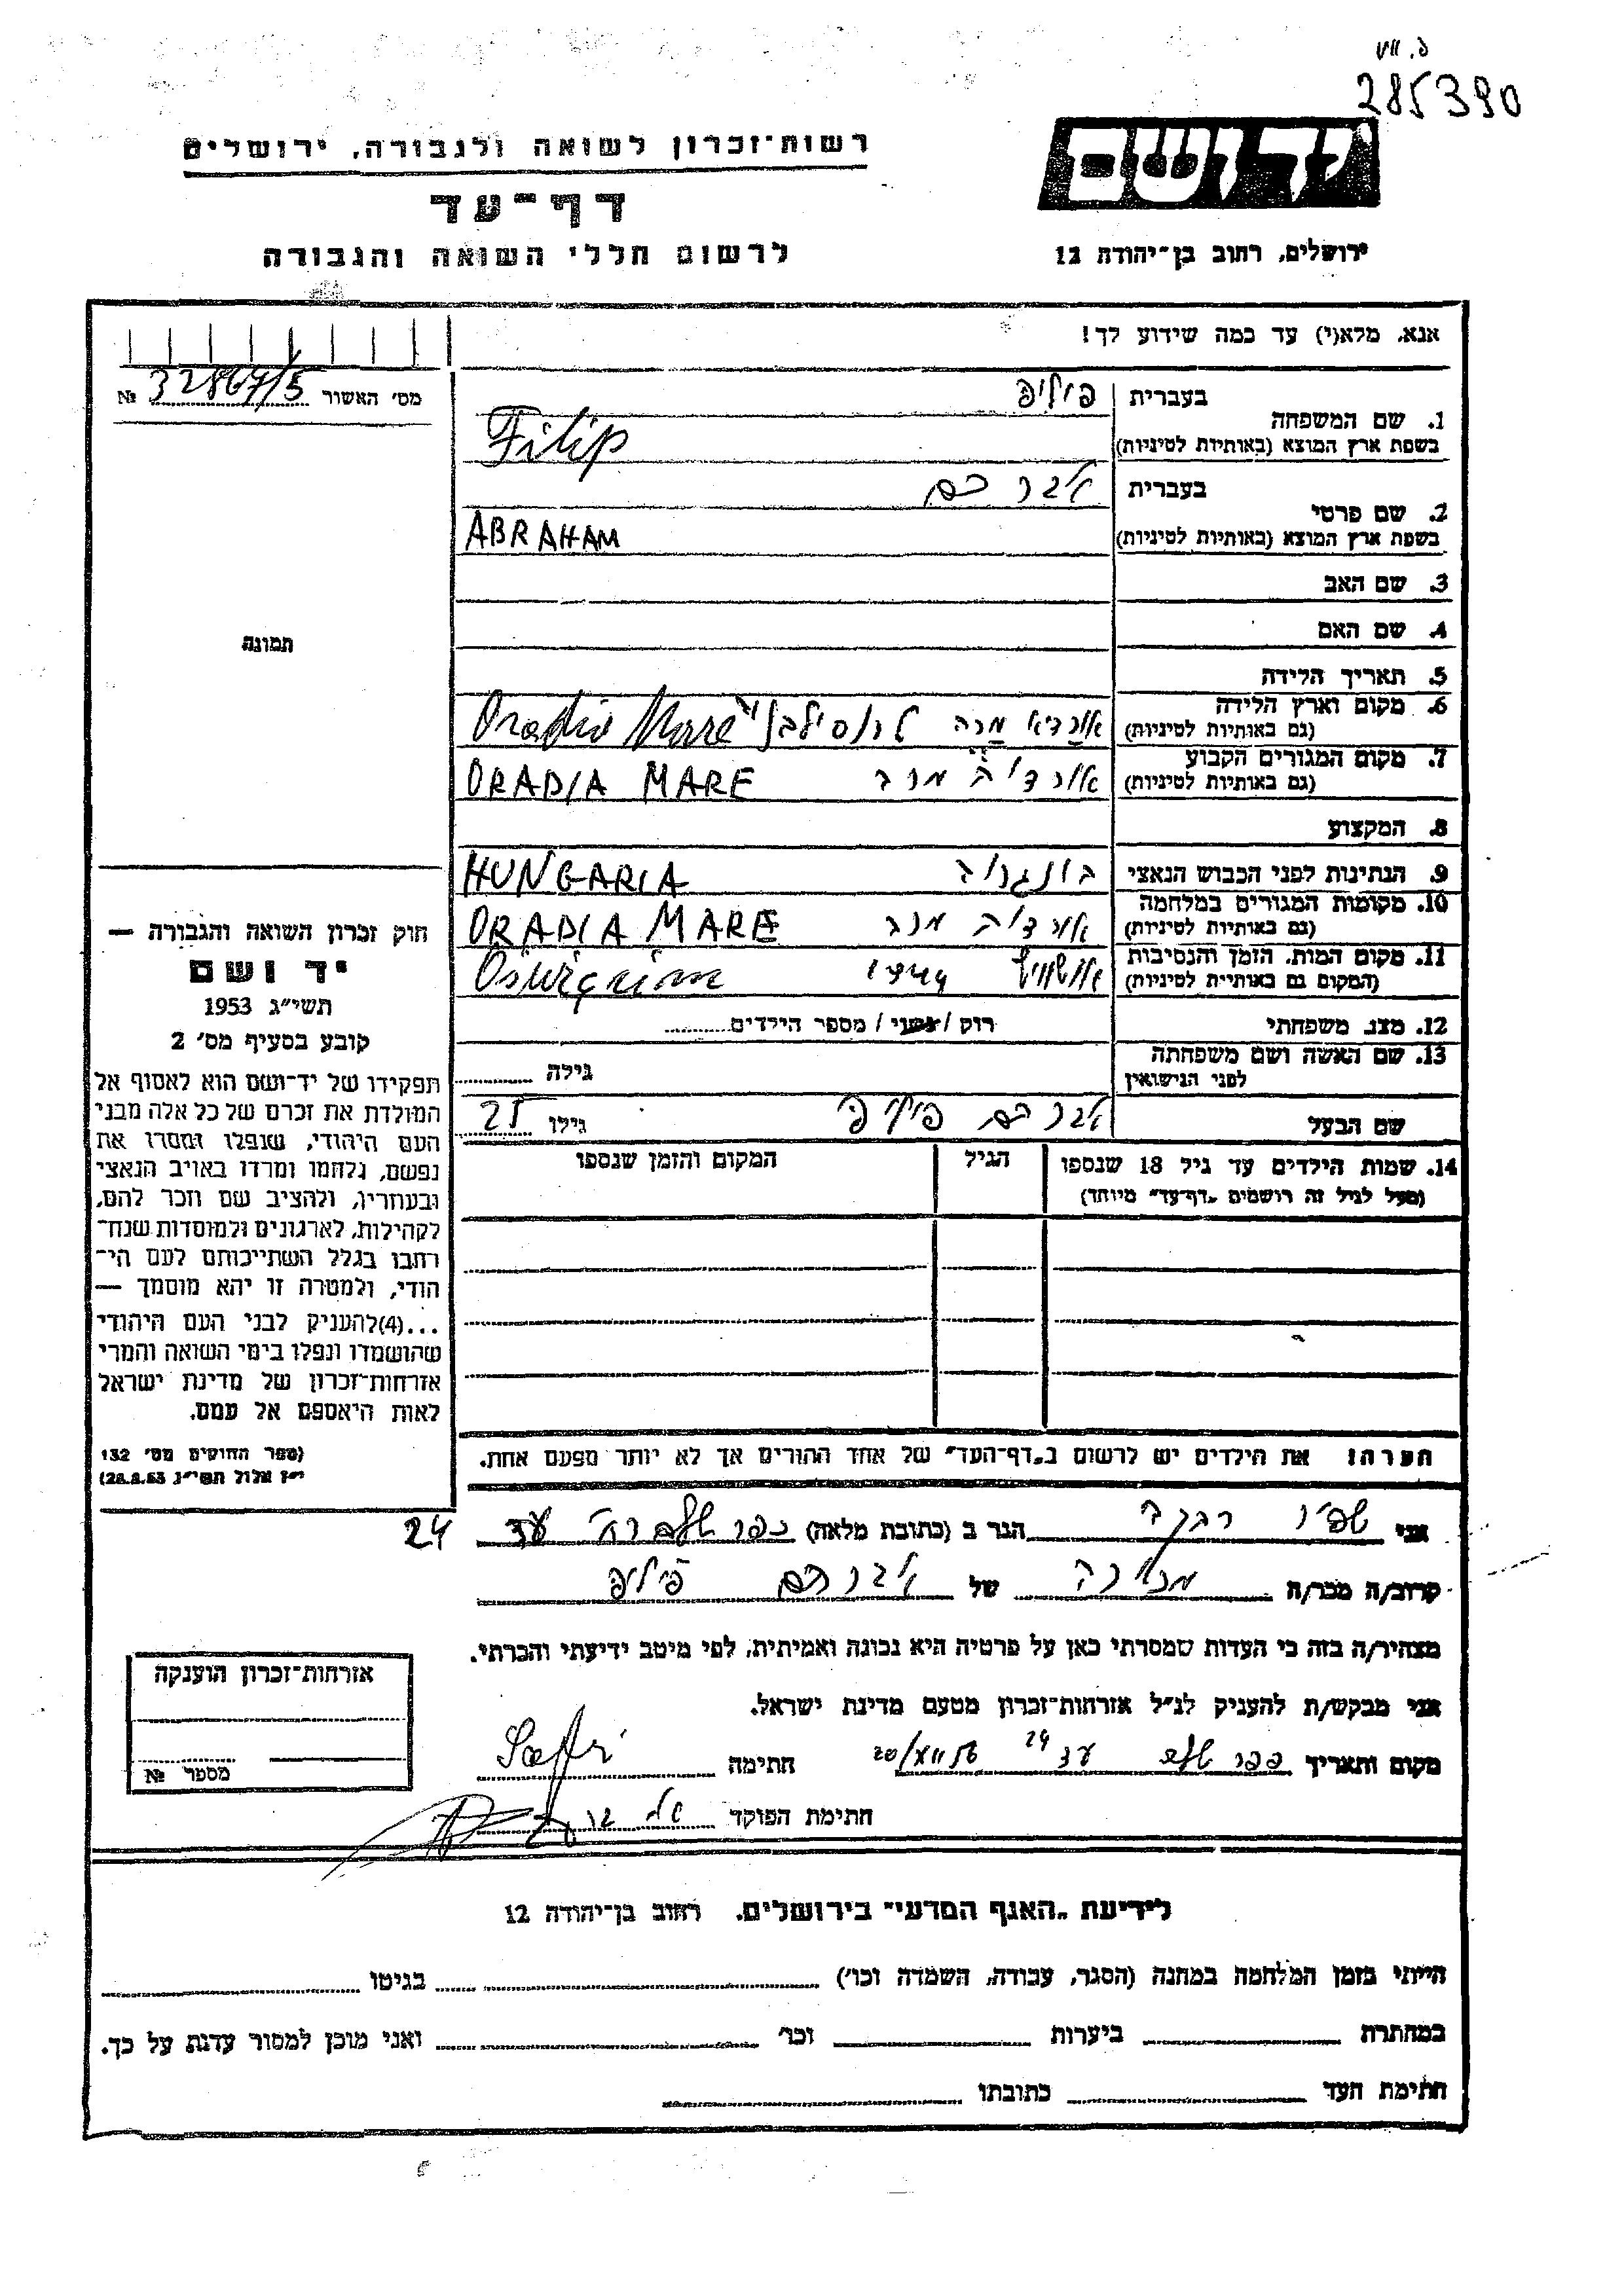 285390
יד ושם
רשות־זכרון לשואה ולגבורה, ירושלים
דף־עד
לרשום חללי השואה והגבורה
ירושלים, רחוב בן־יהודה 12
אנא, מלא(י) עד כמה שידוע לך!
מס׳ האשור 32867/5 №
תמונה
1. שם המשפחה
בעברית פיליפ
בשפת ארץ המוצא (באותיות לטיניות) Filip
2. שם פרטי
בעברית אברהם
בשפת ארץ המוצא (באותיות לטיניות) ABRAHAM
3. שם האב
4. שם האם
5. תאריך הלידה
6. מקום וארץ הלידה
(גם באותיות לטיניות) אורדיא מרה Oradia Mare
7. מקום המגורים הקבוע
(גם באותיות לטיניות) אורדיה מרה ORADIA MARE
8. המקצוע
9. הנתינות לפני הכבוש הנאצי הונגריה HUNGARIA
10. מקומות המגורים במלחמה
(גם באותיות לטיניות) אורדיה מרה ORADIA MARE
11. מקום המות, הזמן והנסיבות
(המקום גם באותיות לטיניות) אושוויץ 1944
12. מצב משפחתי רוק / נשוי / מספר הילדים
13. שם האשה ושם משפחתה
לפני הנישואין גילה
שם הבעל אברהם פיליפ גילו 25
14. שמות הילדים עד גיל 18 שנספו הגיל המקום והזמן שנספו
(מעל לגיל זה רושמים „דף־עד״ מיוחד)
הערה: את הילדים יש לרשום ב„דף־העד״ של אחד ההורים אך לא יותר מפעם אחת.
חוק זכרון השואה והגבורה —
יד ושם
תשי״ג 1953
קובע בסעיף מס׳ 2
תפקידו של יד־ושם הוא לאסוף אל
המולדת את זכרם של כל אלה מבני
העם היהודי, שנפלו ומסרו את
נפשם, נלחמו ומרדו באויב הנאצי
ובעוזריו, ולהציב שם וזכר להם,
לקהילות, לארגונים ולמוסדות שנח־
רחבו בגלל השתייכותם לעם הי־
הודי, ולמטרה זו יהא מוסמך —
...(4)להעניק לבני העם היהודי
שהושמדו ונפלו בימי השואה והמרי
אזרחות־זכרון של מדינת ישראל
לאות היאספם אל עמם.
(ספר החוקים מס׳ 132
י״ז אלול תשי״ג 28.8.53)
אני שפיר רבקה הגר ב (כתובת מלאה) כפר שלם רח׳ עד 24
קרוב/ה מכר/ה מכירה של אברהם פיליפ
מצהיר/ה בזה כי העדות שמסרתי כאן על פרטיה היא נכונה ואמיתית, לפי מיטב ידיעתי והכרתי.
אני מבקש/ת להעניק לנ״ל אזרחות־זכרון מטעם מדינת ישראל.
מקום ותאריך כפר שלם עד 24 חתימה
חתימת הפוקד
אזרחות־זכרון הוענקה
מספר №
לידיעת „האגף המדעי״ בירושלים, רחוב בן־יהודה 12
הייתי בזמן המלחמה במחנה (הסגר, עבודה, השמדה וכו׳) בגיטו
במחתרת ביערות וכו׳ ואני מוכן למסור עדות על כך.
חתימת העד כתובתו